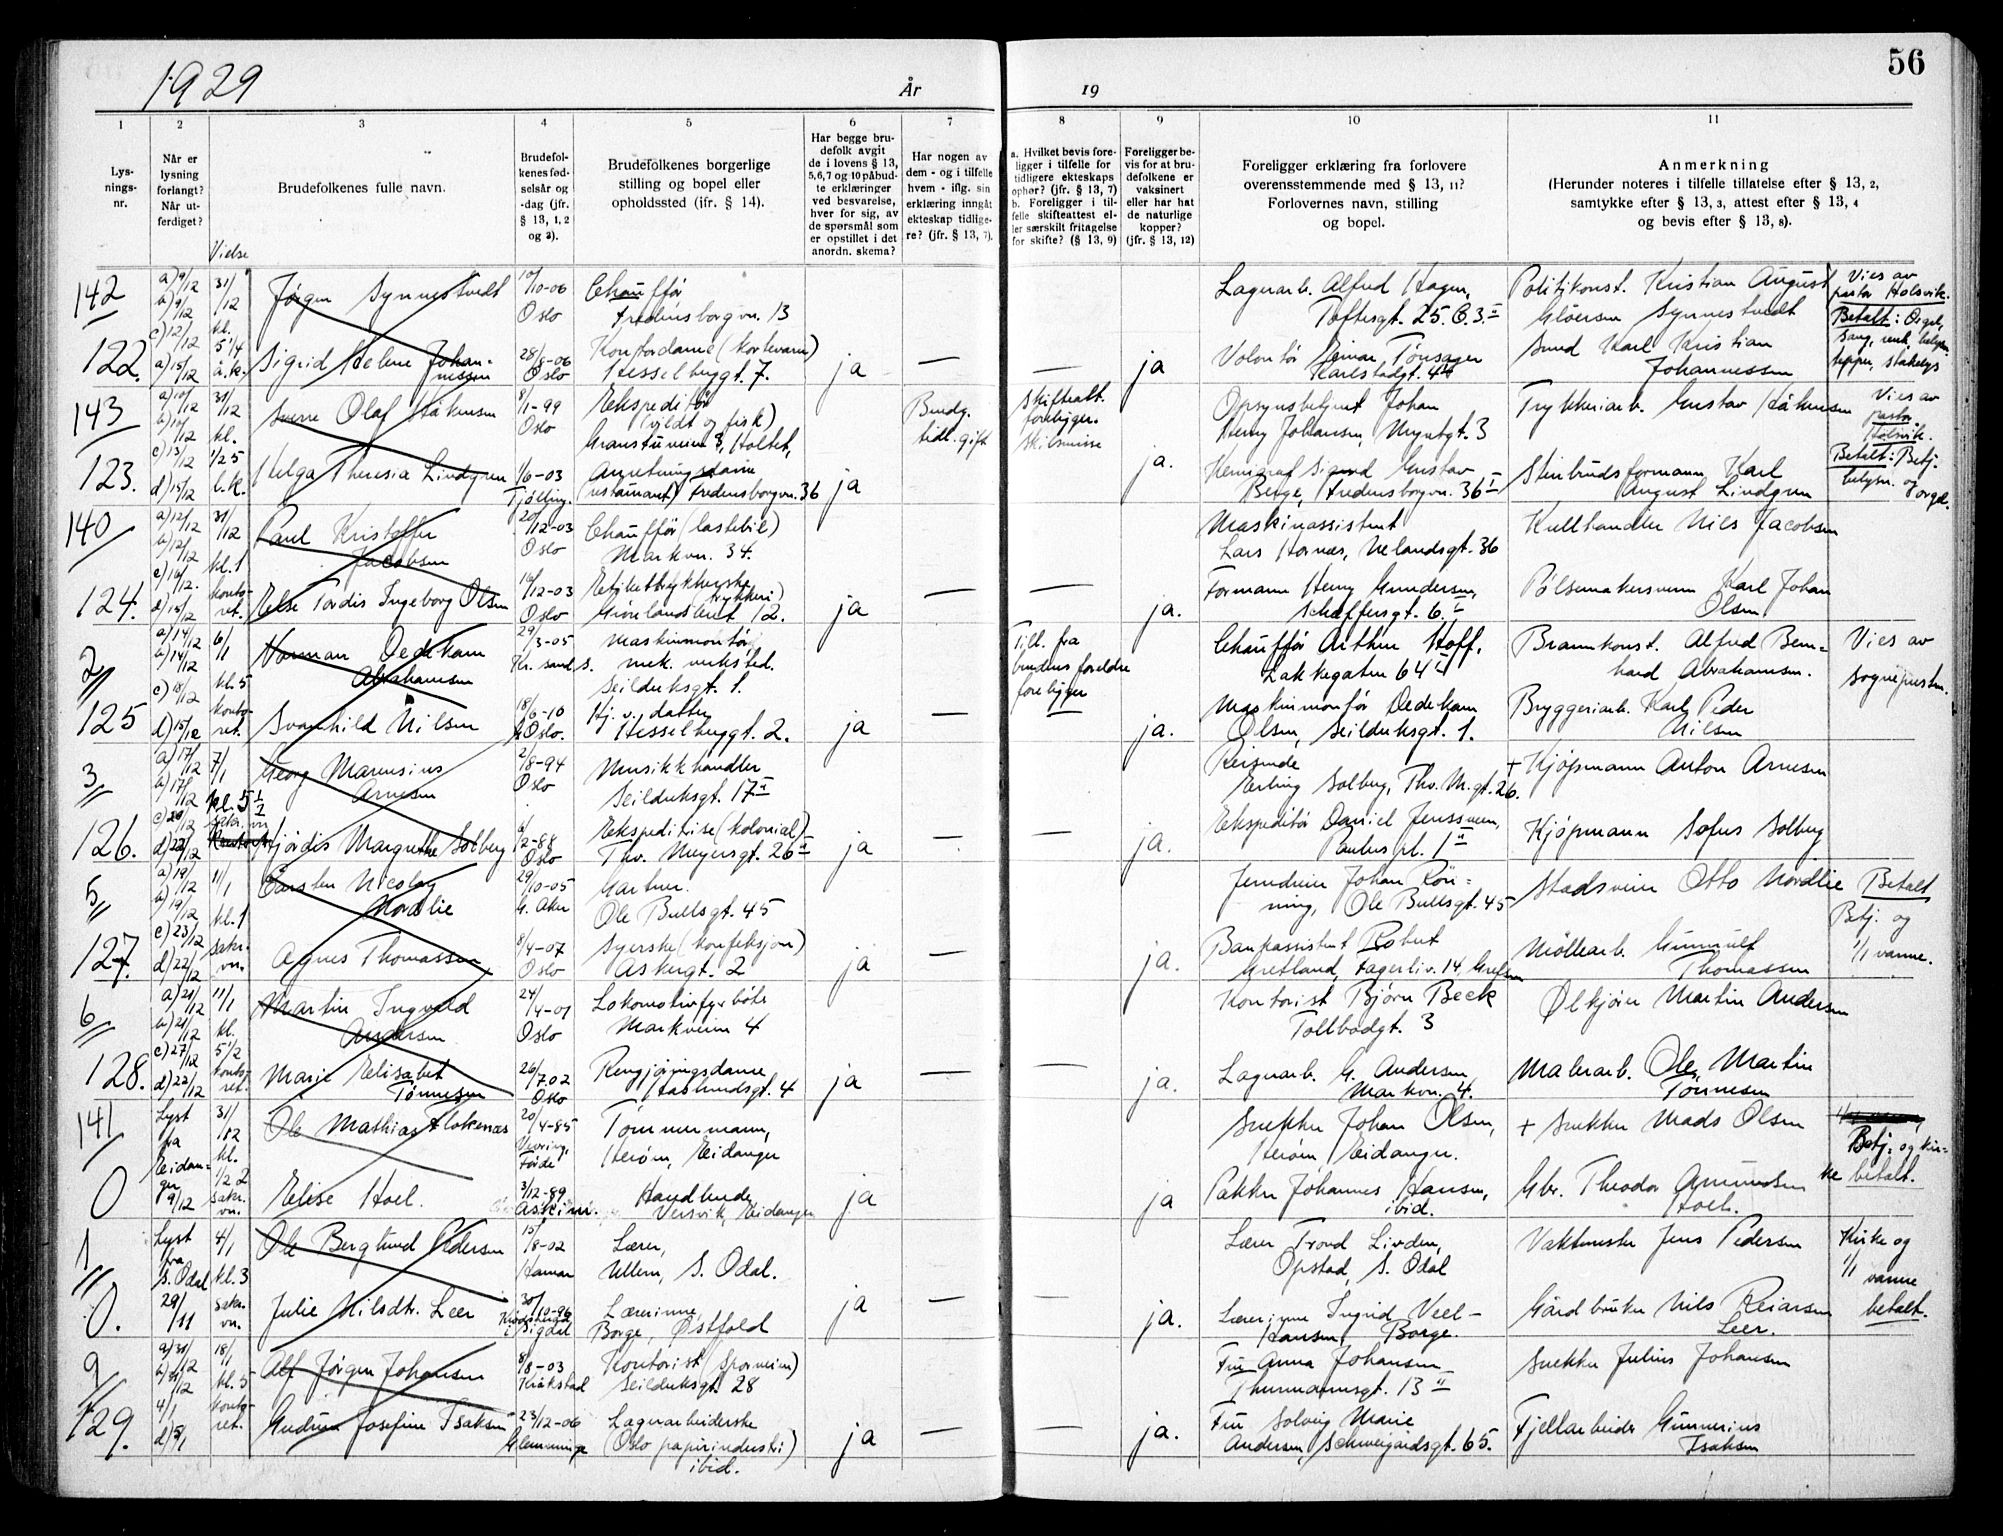 56
1929
År
19
1
2
3
4
5
6
7
8
9
10
11
Lys-
nings-
nr.
Når er
lysning
forlangt?
Når ut-
ferdiget?
Vielse
Brudefolkenes fulle navn.
Brudefol-
kenes fød-
selsår og
-dag (jfr.
§ 13, 1, 2
og 3).
Brudefolkenes borgerlige
stilling og bopel eller
opholdssted (jfr. § 14).
Har begge bru-
defolk avgit
de i lovens § 13,
5,6,7 og 10 påbud-
te erklæringer
ved besvarelse,
hver for sig, av
de spørsmål som
er opstillet i det
anordn. skema?
Har nogen av
dem - og i tilfelle
hvem - iflg. sin
erklæring inngåt
ekteskap tidlige-
re? (jfr. § 13, 7).
a. Hvilket bevis fore-
ligger i tilfelle for
tidligere ekteskaps
ophør? (jfr. § 13, 7)
b. Foreligger i til-
felle skifteattest el-
ler særskilt fritagelse
for skifte? (§ 13, 9)
Foreligger be-
vis for at bru-
defolkene er
vaksinert
eller har hat
de naturlige
kopper?
(jfr. § 13, 12)
Foreligger erklæring fra forlovere
overensstemmende med § 13, 11?
Forlovernes navn, stilling
og bopel.
Anmerkning
(Herunder noteres i tilfelle tillatelse efter § 13, 2,
samtykke efter § 13, 3, attest efter § 13, 4
og bevis efter § 13, 8).
142
a) 9/12
b) 9/12
c) 12/12
31/12
kl.
5 1/4
Jørgen Synnestvedt
10/10-06
Oslo
Chauffør
Fredensborgvn. 13
Lagerarb. Alfred Hagen,
Toftesgt. 25. C. 3. II
Politikonst. Kristian August
Gløersen Synnestvedt
Vies av
pastor Holsvik.
Betalt: Orgel,
122.
d) 15/12
Sigrid Helene Johan-
nessen
28/8-06
Oslo
Kontordame
Hesselbergt. 7.
ja
—
—
ja
Volontør Einar Tønsager
Karlstadgt. 4
Smed Karl Kristian
Johannessen
143
a) 10/12
b) 10/12
c) 13/12
31/12
kl.
1/2 5
Sverre Olaf Håkensen
8/1-99
Oslo
Ekspeditør
(vildt og fisk)
Granstuveien 3, Holtet,
Brudg.
tidl. gift
Skifteatt.
foreligger.
Skilsmisse
Opsynsbetjent Johan
Henry Johansen, Myntgt. 3
Trykkeriarb. Gustav Håkensen
Vies av
pastor
Holsvik.
123.
d) 15/12
Helga Theresia Lindgren
1/6-03
Tjølling.
Anretningsdame
(restaurant) Fredensborgvn. 36
ja
ja.
Sigurd Gustav
Berge, Fredensborgvn. 36 I
Stenbrudsformann Karl
August Lindgren
Betalt: Betj.
belysn. og
orgel.
140
a) 12/12
b) 12/12
c) 16/12.
31/12
kl. 1
konto-
ret.
Paul Kristoffer
Jacobsen
20/12-03
Oslo
Chauffør (lastebil)
Markvn. 34.
Maskinassistent
Lars Hornæs, Uelandsgt. 36
Kullhandler Nils Jacobsen
124.
d) 15/12
Else Tordis Ingeborg Olsen
16/12-03
Oslo
Etikettrykkerske
(trykkeri)
Grønlandsleret 12.
ja
—
—
ja.
Formann Henry Gundersen,
Schæffersgt. 6 I
Pølsemakersvenn Karl Johan
Olsen
2
a) 14/12
b) 14/12
c) 18/12
6/1
kl. 5
konto-
ret.
Norman Dedekam
Abrahamsen
29/3-05
Kr. sand S.
Maskinmontør
mek. verksted.
Seilduksgt. 1.
Till. fra
brudens foreldre
foreligger
Chauffør Arthur Hoff,
Lakkegaten 64 I
Brannkonst. Alfred Bern-
hard Abrahamsen.
Vies av
sognepresten.
125
d) 15/12
Svanhild Nilsen
18/6-10
Oslo.
Hj. v. datter
Hesselbergt. 2.
ja
—
—
ja.
Maskinmontør Dedekam
Olsen, Seilduksgt. 1.
Bryggeriarb. Karl Peder
Nilsen
3
a) 17/12
b) 17/12
c) 20/12
7/1
kl. 5 1/2
Georg Marensius
Arnesen
2/8-94
Oslo
Musikkhandler
Seilduksgt. 17 II
Reisende
Erling Solberg, Thv. M. gt. 26.
+ Kjøpmann Anton Arnesen
126.
d) 22/12
Hjørdis Margrethe Solberg
6/2-88
Oslo
Ekspeditrise (kolonial)
Thv. Meyersgt. 26 II
ja
—
—
ja.
Ekspeditør Daniel Jenssveen,
Paulus pl. 1 II
Kjøpmann Sofus Solberg
5
a) 19/12
b) 19/12
c) 23/12
11/1
kl. 1
sakr.
vn.
Carsten Nicolay
Nordlie
29/10-05
Ø. Aker
Gartner.
Ole Bullsgt. 45
Jerndreier Johan Røn-
ning, Ole Bullsgt. 45
Stadsveier Otto Nordlie
Betalt
Betj. og
1/1 varme.
127.
d) 22/12
Agnes Thomassen
8/4-07
Oslo
Syerske (konfeksjon)
Askergt. 2
ja
—
ja.
Bankassistent Robert
Gretland, Fagerliv. 14, Grefsen
Møllearb. Gunnulf
Thomassen
6
a) 21/12
b) 21/12
c) 27/12
11/1
kl.
5 1/2
konto-
ret.
Martin Ingvald
Andersen
24/4-01
Oslo
Lokomotivfyrbøter
Markveien 4
Kontorist Bjørn Beck
Tollbodgt. 3
Ølkjører Martin Andersen
128.
d) 22/12
Marie Elisabet
Tønnesen
26/7.02
Oslo
Rengjøringsdame
Haslundsgt. 4
ja
—
—
ja.
Lagerarb. G. Andersen,
Markvn. 4.
Malerarb. Ole Martin
Tønnesen
141
Lyst
fra
Eidan-
ger
9/12
31/12
kl.
1/2 2
sakr.
vn.
Ole Mathias Flokenæs
20/4-85
Vevring,
Førde
Tømmermann,
Herøen, Eidanger
Snekker Johan Olsen,
Herøen Eidanger.
+ Snekker Mads Olsen
Betj. og kir-
ke betalt.
0
Elise Hoel.
3/12-89
Askim.
Handlende
Versvik, Eidanger
ja
ja
Pakker Johannes Hansen,
ibid.
Gbr. Theodor Amundsen
Hoel.
1
Lyst
fra
S. Odal
29/11
4/1
kl. 3
sakr.
vn.
Ole Berglund Pedersen
15/8-02
Hamar
Lærer,
Ullern, S. Odal.
Lærer Trond Linden,
Opstad, S. Odal
Vaktmester Jens Pedersen
Kirke og
1/1 varme
betalt.
0.
Julie Nilsdtr. Leer
30/10-96
Sigdal
Lærerinne,
Borge, Østfold
ja
—
—
ja.
Lærerinne Ingrid Veel-
Hansen, Borge.
Gårdbruker Nils Reiersen
Leer.
9
a) 30/12
b) 31/12
18/1
kl. 5
konto-
ret.
Alf Jørgen Johansen
8/8-03
Kråkstad
Kontorist (Sporveien)
Seilduksgt. 28
Fru Anna Johansen
Thurmannsgt. 13 II
Snekker Julius Johansen
129.
4/1
d) 3/1
Gudrun Josefine Isaksen
23/12-06
Glemminge
Lagerarbeiderske
(Oslo papirindustri)
ibid.
ja
—
—
ja.
Fru Solveig Marie
Andersen, Schweigårdsgt. 65.
Fjellarbeider Gunnerius
Isaksen